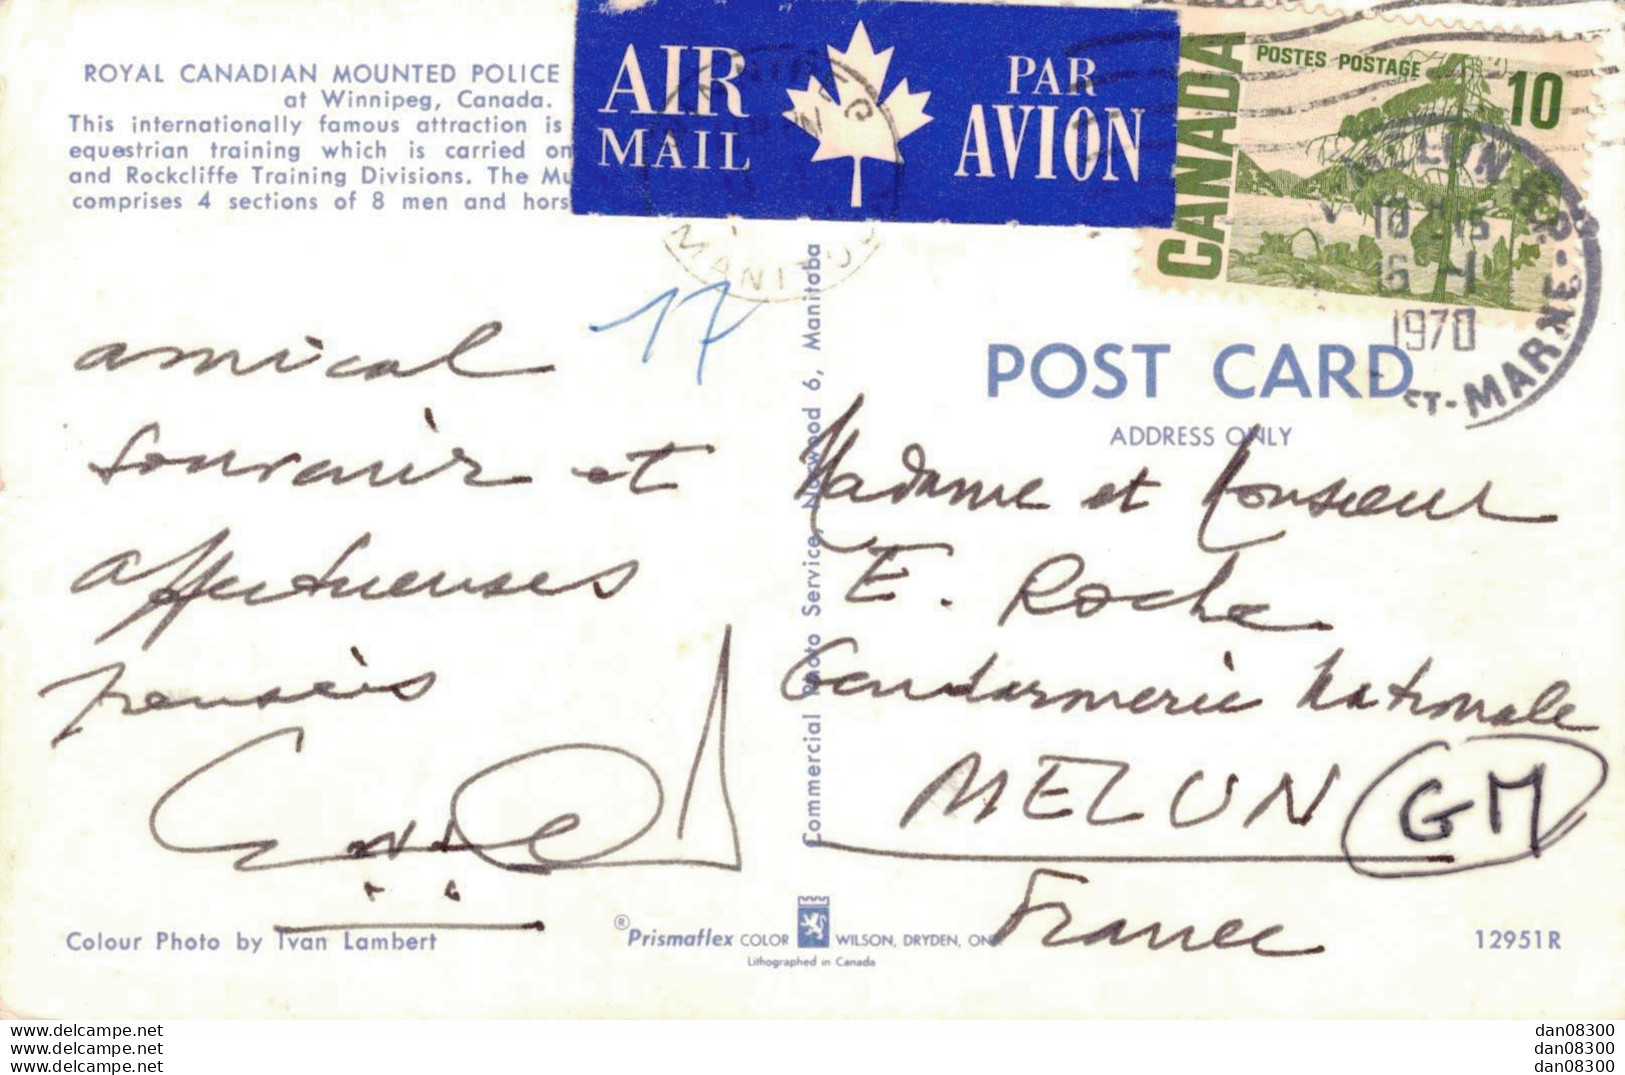 ROYAL CANADIAN MOUNTED POLICE
at Winnipeg, Canada.
This internationally famous attraction is
equestrian training which is carried on
and Rockcliffe Training Divisions. The Mu
comprises 4 sections of 8 men and hors
AIR MAIL
PAR AVION
CANADA
POSTES POSTAGE
10
MELUN
10 H15
16 -1
1970
ET-MARNE
MANITOBA
17
amical
souvenir et
affectueuses
pensées
POST CARD
ADDRESS ONLY
Madame et Monsieur
E. Roche
Gendarmerie Nationale
MELUN GM
France
Commercial Photo Service, Norwood 6, Manitaba
Colour Photo by Ivan Lambert
® Prismaflex COLOR WILSON, DRYDEN, ON
Lithographed in Canada
12951R
www.delcampe.net
www.delcampe.net
www.delcampe.net
dan08300
dan08300
dan08300